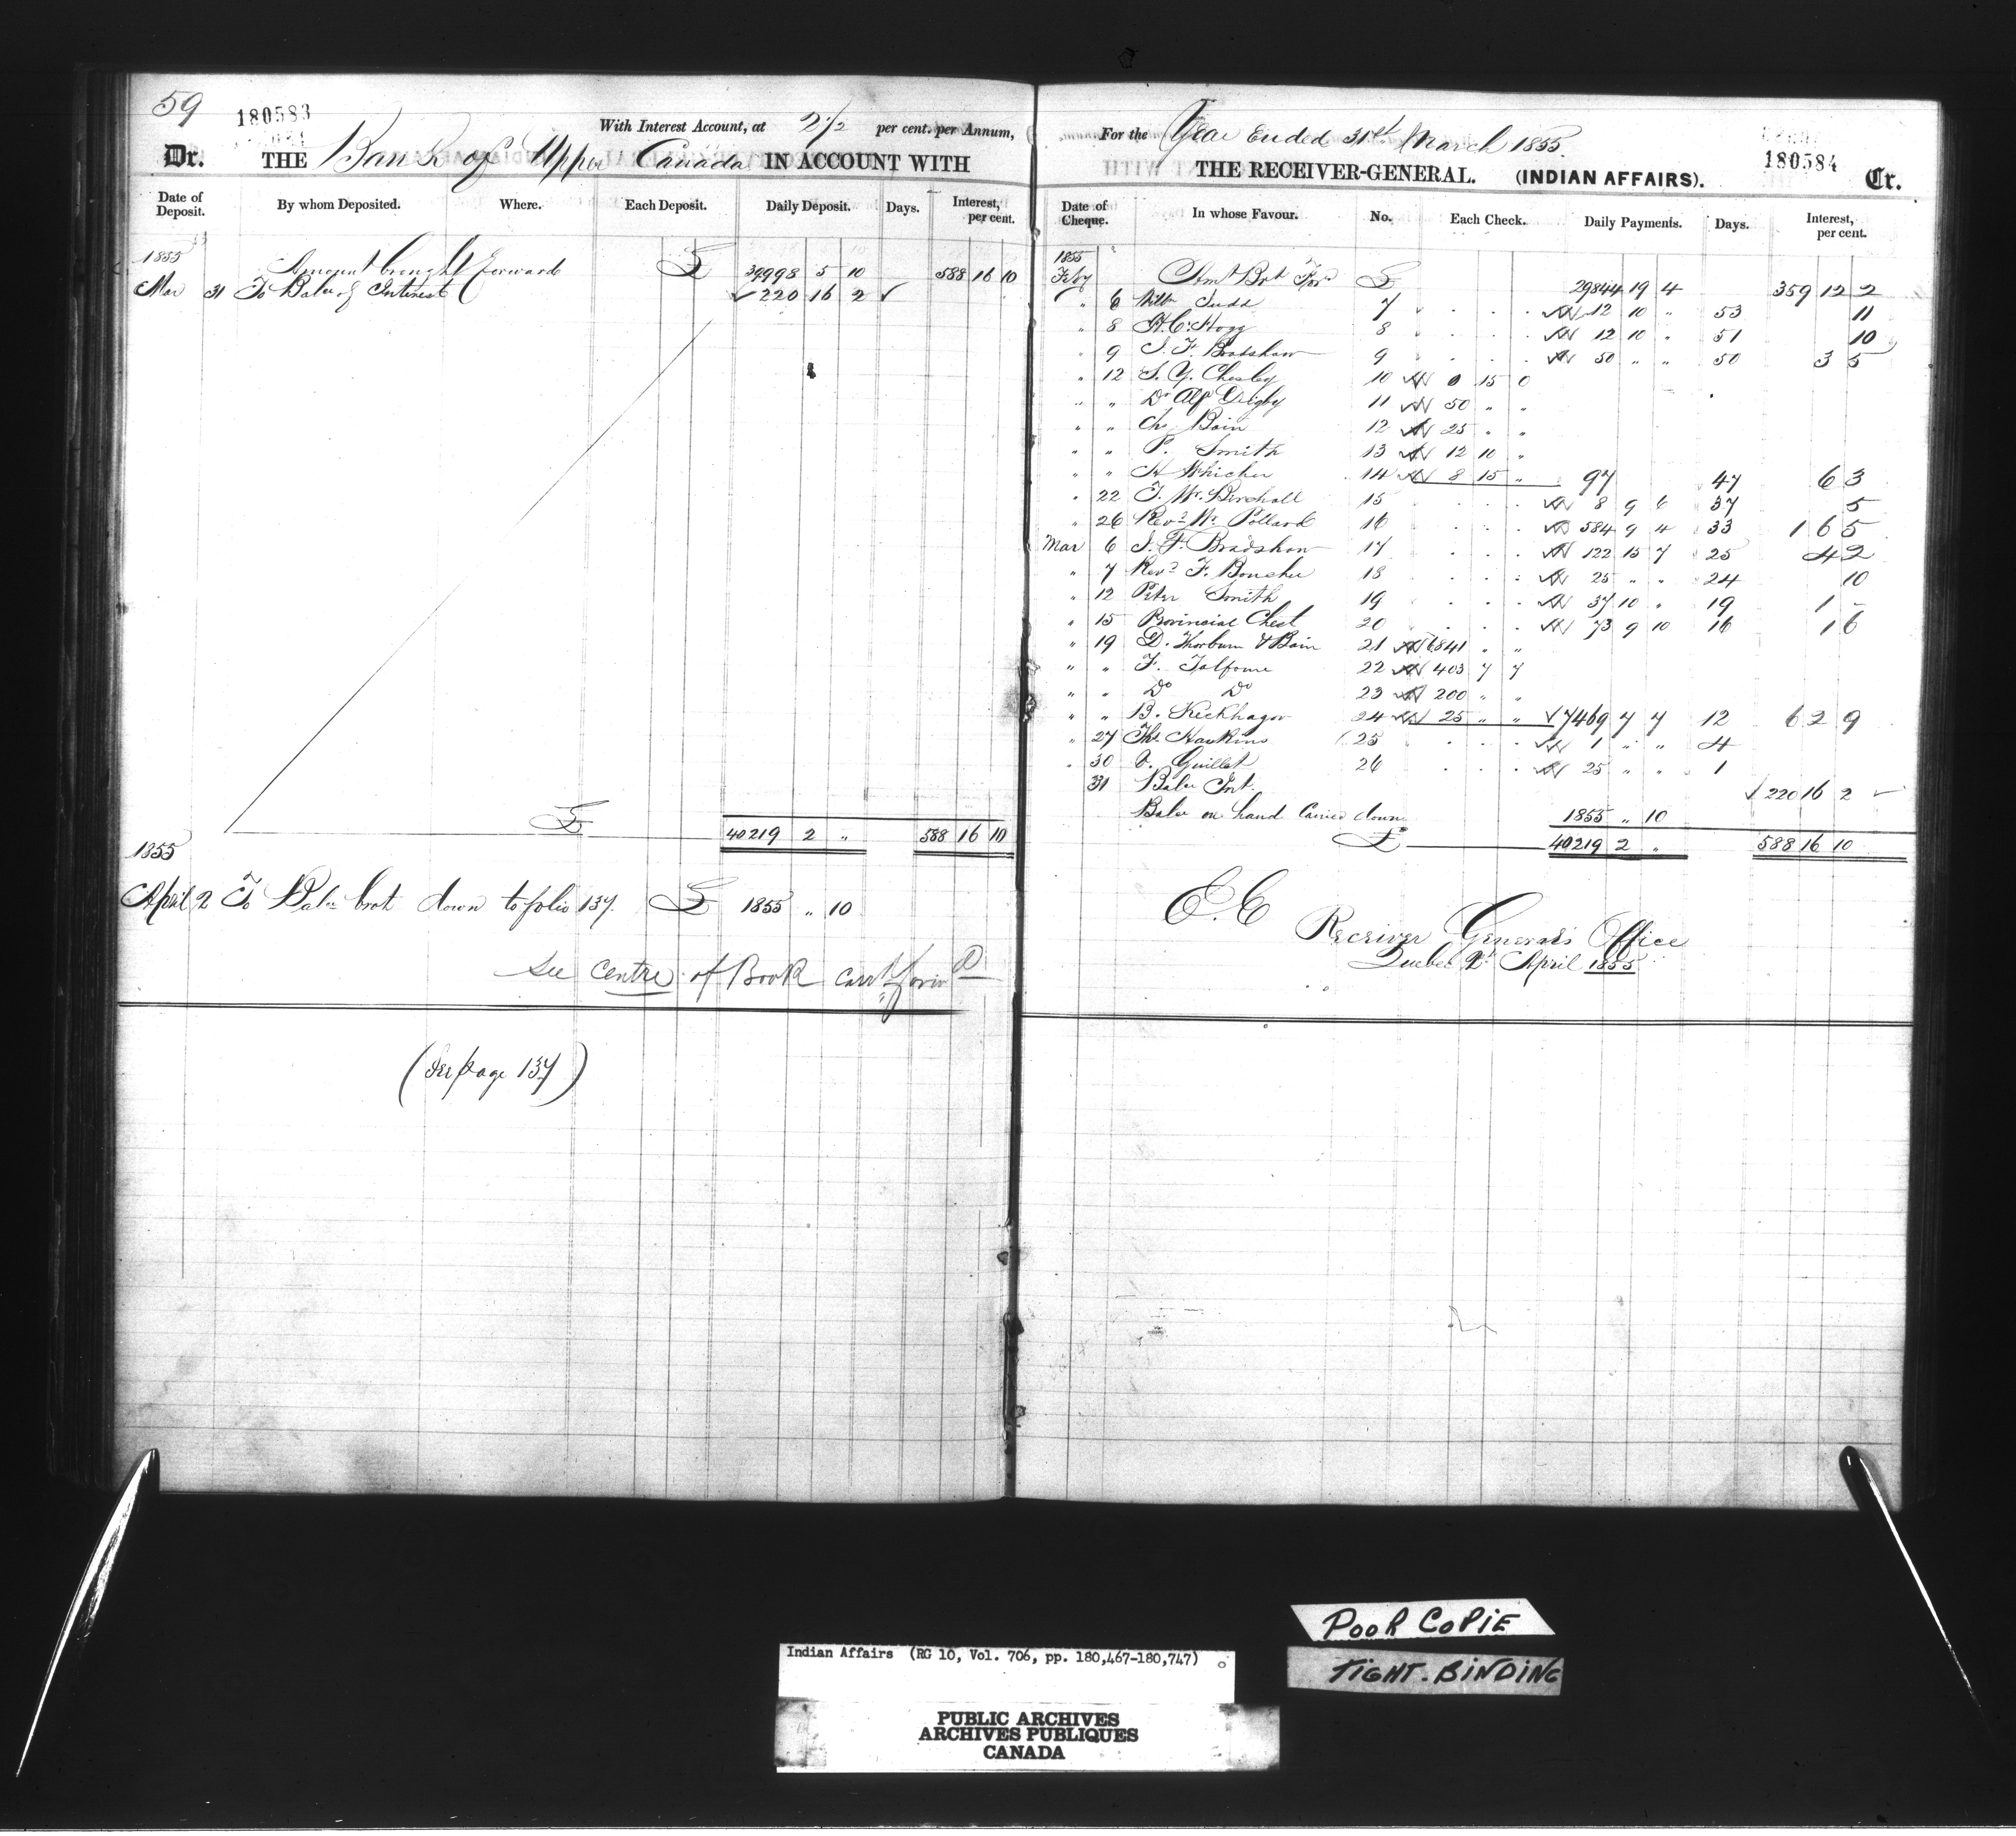 59
180583
With Interest Account, at 2½ per cent. per Annum,
Dr. THE Bank of Upper Canada IN ACCOUNT WITH
Date of Deposit. By whom Deposited. Where. Each Deposit. Daily Deposit. Days. Interest, per cent.
1855
Amount brought forward £ 39998 5 10 588 16 10
Mar 31 To Balce of Interest 220 16 2
£ 40219 2 " 588 16 10
1855
April 2 To Balce brot down to folio 137. £ 1855 " 10
See centre of Book carrd forwd
(See page 137)
For the Year Ended 31st March 1855.
THE RECEIVER-GENERAL. (INDIAN AFFAIRS). 180584 Cr.
Date of Cheque. In whose Favour. No. Each Check. Daily Payments. Days. Interest, per cent.
1855
Feby Amt Brt Ford £ 29844 19 4 359 12 2
" 6 Willm Judd 7 12 10 " 53 11
" 8 H. C. Hogg 8 12 10 " 51 10
" 9 J. F. Bradshaw 9 50 " " 50 3 5
" 12 S. Y. Chesley 10 0 15 0
" " Dr Alf Digby 11 50 " "
" " Chs Bain 12 25 " "
" " P. Smith 13 12 10 "
" " H Whicher 14 8 15 " 97 47 6 3
" 22 T. W. Birchall 15 8 9 6 37 5
" 26 Revd Wm Pollard 16 584 9 4 33 1 6 5
Mar 6 J. F. Bradshaw 17 122 15 7 25 4 2
" 7 Revd F. 18 25 " " 24 10
" 12 Peter Smith 19 37 10 " 19 1 -
" 15 Provincial Chest 20 73 9 10 16 1 6
" 19 D. Thorburn & Bain 21 6841 " "
" " F. Talfourd 22 403 7 7
" " Do Do 23 200 " "
" " B. 24 25 " " 7469 7 7 12 6 2 9
" 27 Ths Hawkins 25 1 " " 4
" 30 Guillet 26 25 " " 1
31 Balce Int. 220 16 2
Balce on hand Carried down 1855 " 10
£ 40219 2 " 588 16 10
E. E
Receiver General's Office
Quebec 2d April 1855
POOR COPIE
TIGHT-BINDING
Indian Affairs (RG 10, Vol. 706, pp. 180,467-180,747)
PUBLIC ARCHIVES
ARCHIVES PUBLIQUES
CANADA